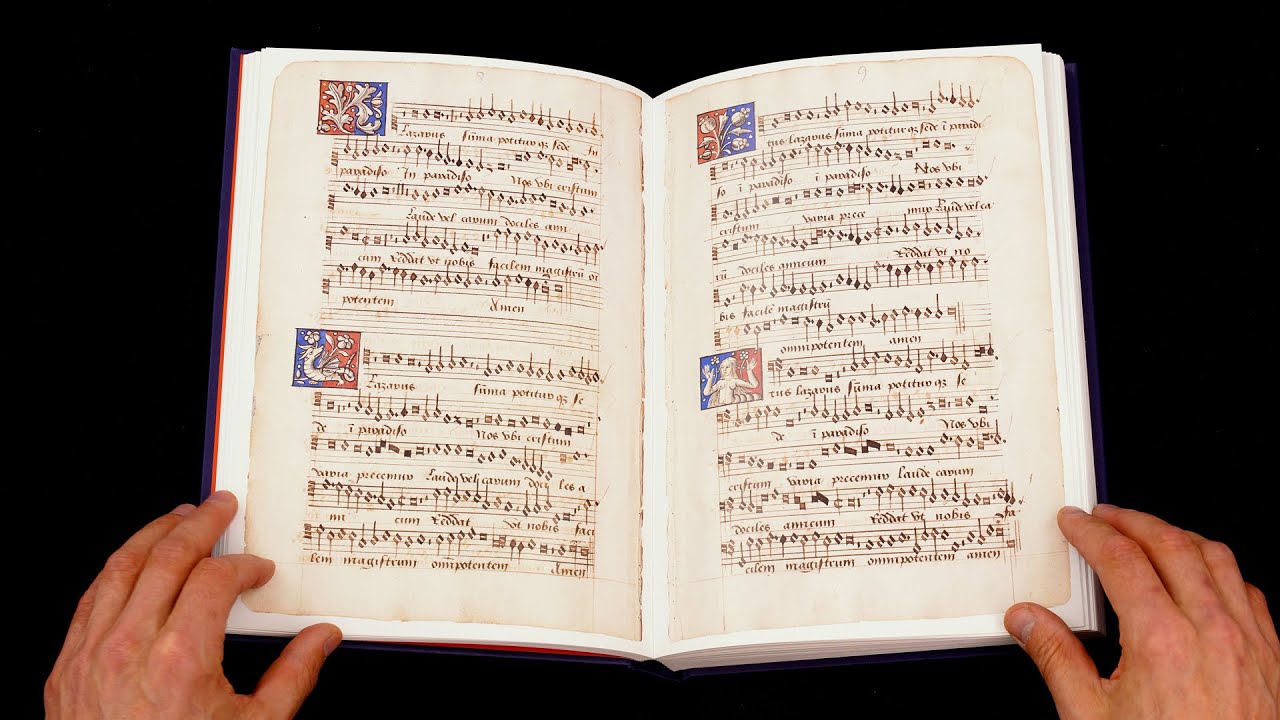 8
Lazarus sūma potitur qȝ sede In
paradiso In paradiso Nos ubi cristum
Laude vel carum dociles am
cum Reddat ut nobis facilem magistrū o
potentem Amen
Lazarus sūma potitur qȝ se
de ī paradiso Nos ubi cristum
varia precemur Laudeqȝ vel carum doci les a
mi cum Reddat Ut nobis faci
lem magistrum omnipotentem Amen
9
tus lazarus sūma potitur qȝ sede ī paradi
so ī paradiso ī paradiso Nos ubi
cristum varia prece mur Laude vel ca
rū dociles amicum Reddat ut no
bis facilē magistrū
omnipotentem amen
tus lazarus sūma potitur qȝ se
de ī paradiso Nos ubi
cristum varia precemur Laude carum
dociles amicum Reddat ut nobis fa
cilem magistrum omnipotentem amen